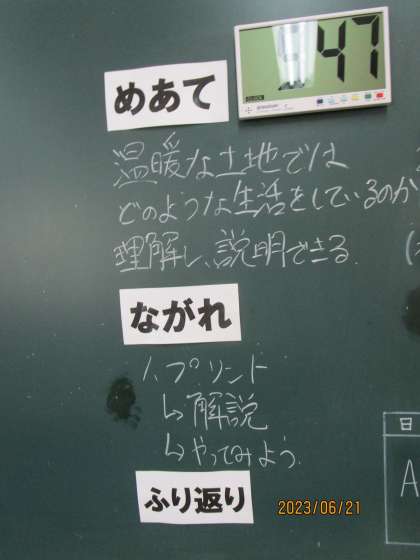 47
めあて
温暖な土地では
どのような生活をしているのか
理解し、説明できる.
ながれ
1、プリント
↳解説
↳やってみよう.
ふり返り
日
A
2023/06/21